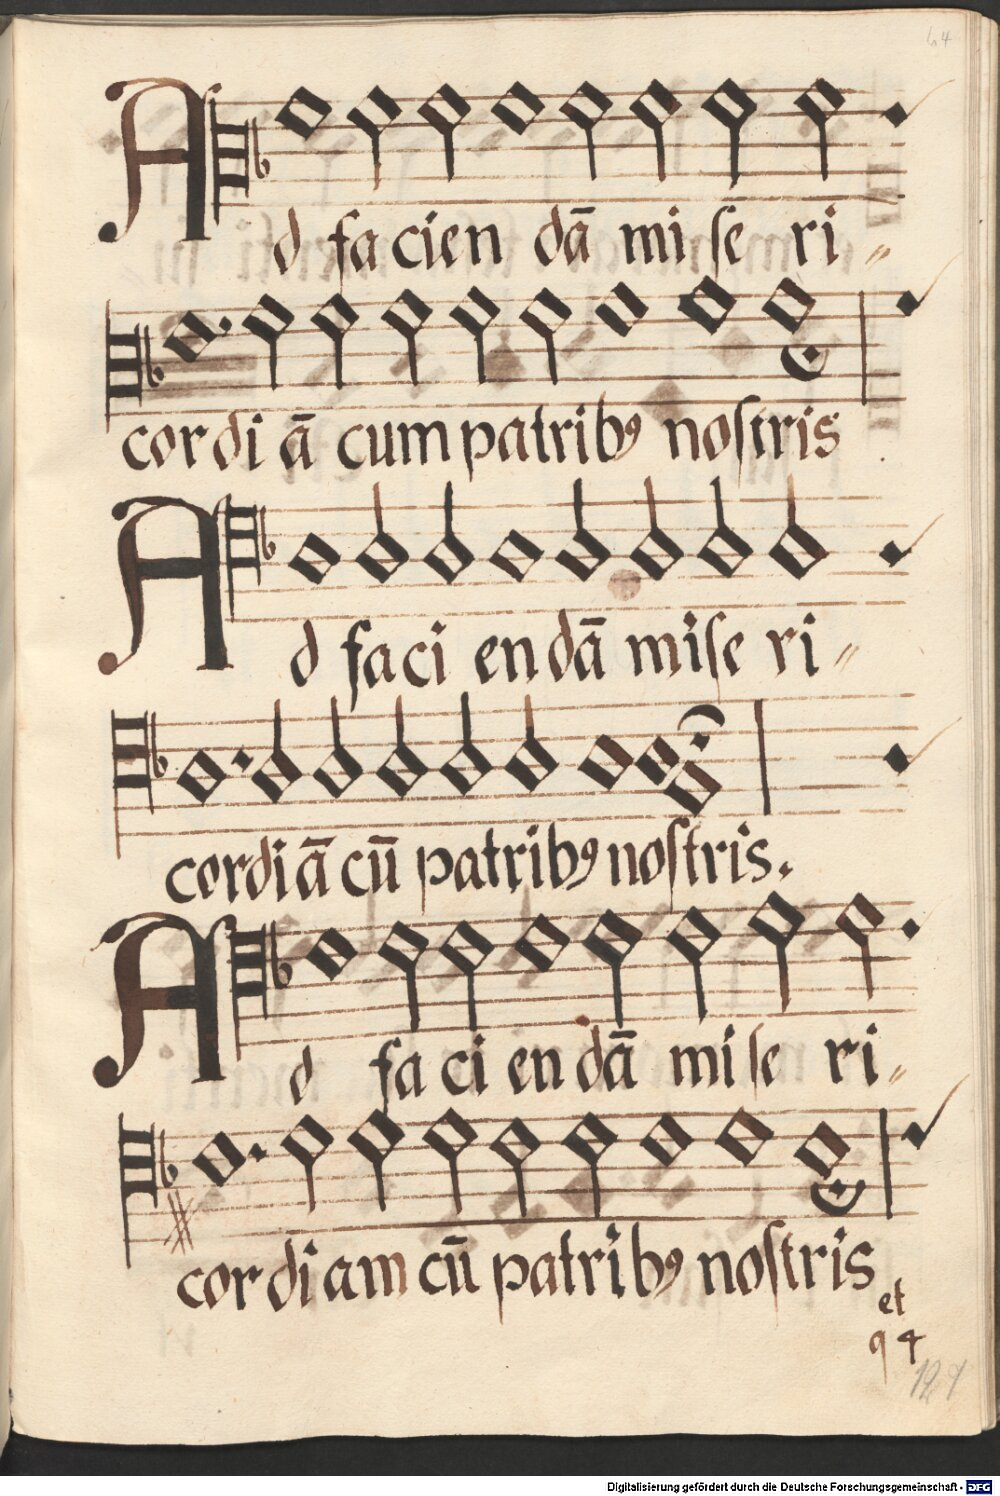 64
Ad facien dā mi se ri〃
cordi ā cum patribꝰ nostris
Ad faci en dā mise ri〃
cordiā cū patribꝰ nostris.
Ad fa ci en dā mi se ri〃
cordi am cū patribꝰ nostris
et
94
Digitalisierung gefördert durch die Deutsche Forschungsgemeinschaft - DFG